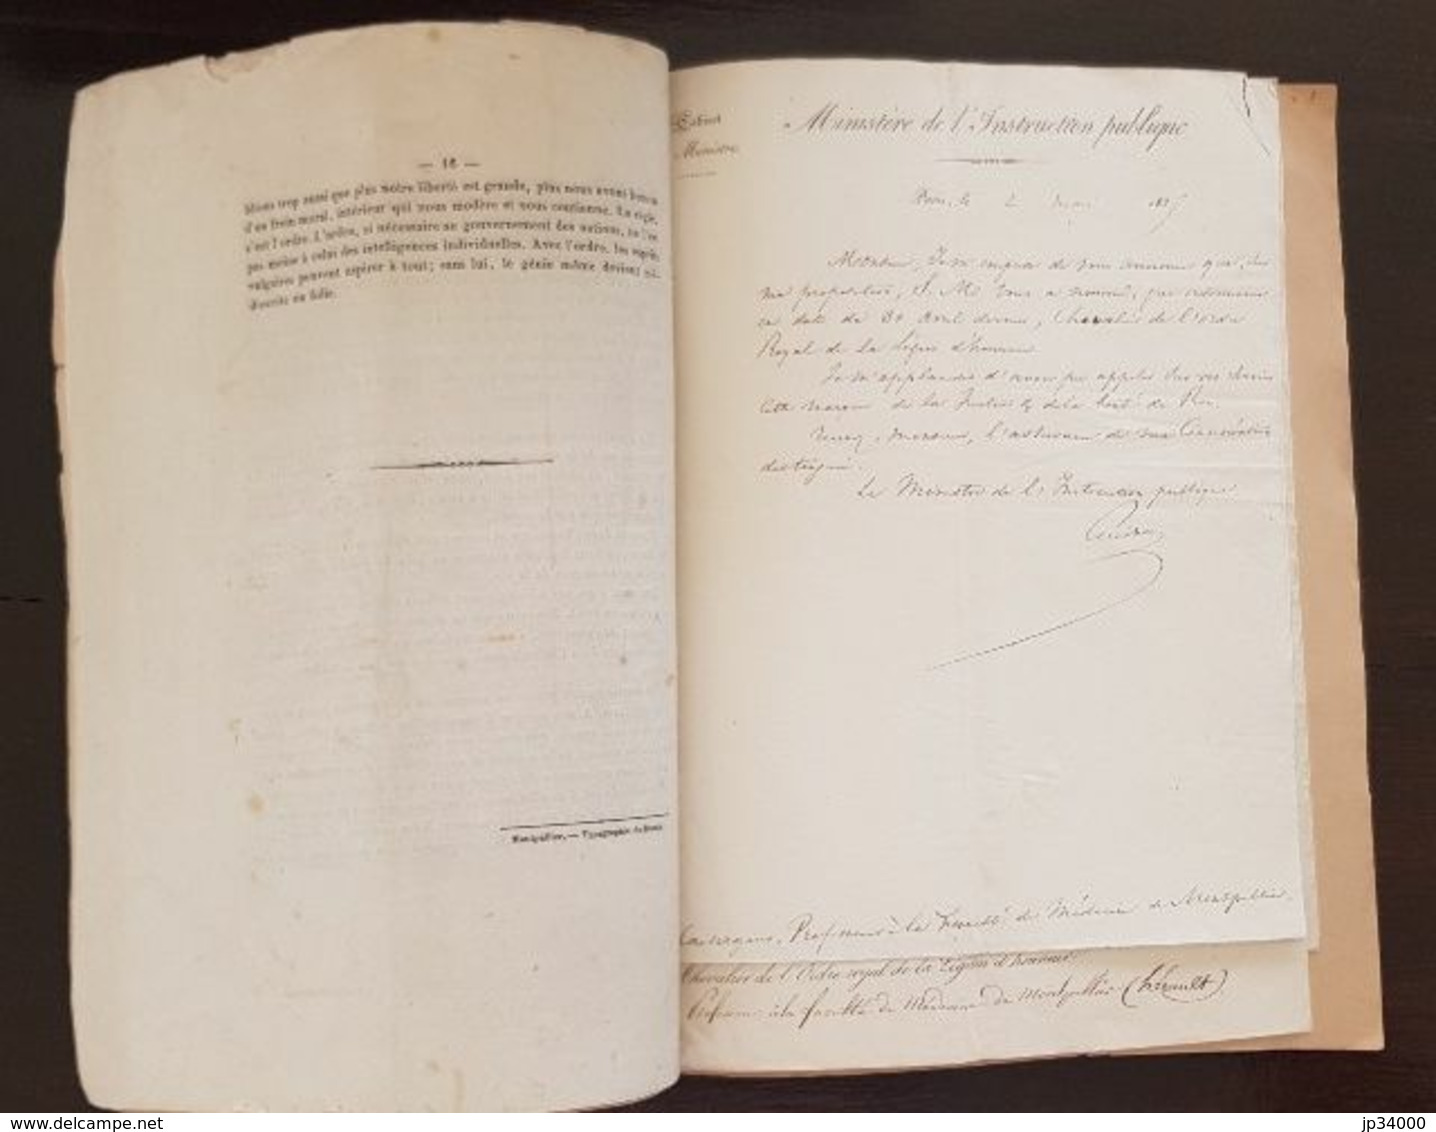 — 16 —
trop aussi que plus notre liberté est grande, plus nous avons besoin
d'un frein moral, intérieur qui nous modère et nous contienne. La règle,
c'est l'ordre. L'ordre, si nécessaire au gouvernement des nations, ne l'est
pas moins à celui des intelligences individuelles. Avec l'ordre, les esprits
vulgaires peuvent aspirer à tout; sans lui, le génie même devient
ou folie.
Montpellier. — Typographie de
Cabinet
Ministre
Ministère de l'Instruction publique
Paris, le 2 mai
Monsieur, Je m'empresse de vous annoncer que, sur
ma proposition, S. M. vous a nommé, par ordonnance
en date du 30 avril dernier, Chevalier de l'ordre
Royal de la Légion d'honneur
Je m'applaudis d'avoir pu appeler sur vos services
cette marque de la Justice & de la bonté du Roi.
Recevez, Monsieur, l'assurance de ma Considération
distinguée.
Le Ministre de l'Instruction publique
Professeur à la Faculté de Médecine de Montpellier.
Chevalier de l'Ordre royal de la Légion d'honneur
Professeur à la faculté de Médecine de Montpellier (hérault)
www.delcampe.net
jp34000